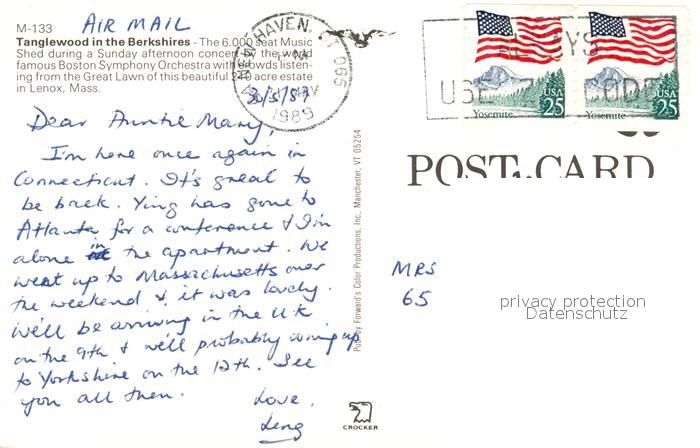 AIR MAIL
M-133
Tanglewood in the Berkshires - The 6,000 seat Music
Shed during a Sunday afternoon concert by the world
famous Boston Symphony Orchestra with crowds listen-
ing from the Great Lawn of this beautiful 210 acre estate
in Lenox, Mass.
HAVEN, CT 065
1989
30/5/89
ALWAYS
USE ZIP CODE
Yosemite
USA
25
Yosemite
USA
25
POST CARD
Dear Auntie Mary,
I'm here once again in
Connecticut. It's great to
be back. Ying has gone to
Atlanta for a conference & I'm
alone in the apartment. We
went up to Massachusetts over
the weekend & it was lovely.
We'll be arriving in the UK
on the 9th & we'll probably coming up
to Yorkshire on the 12th. See
you all then.
Love,
Leng
Pub. by Forward's Color Productions, Inc., Manchester, VT 05254
CROCKER
MRS
65
privacy protection
Datenschutz